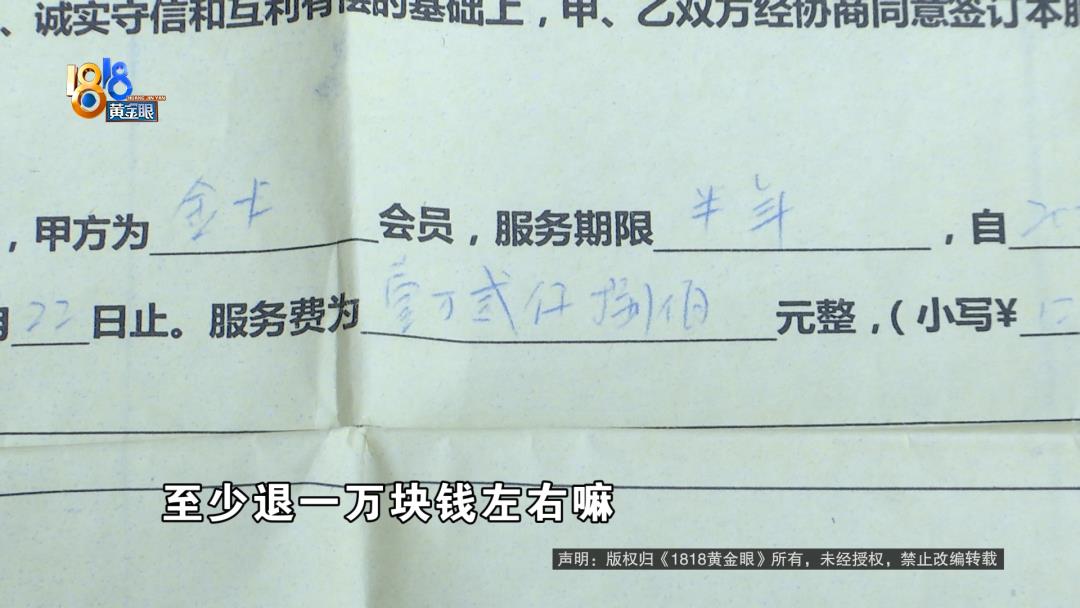 、诚实守信和互利有偿的基础上，甲、乙双方经协商同意签订本服
1818
HUANG JIN YAN
黄金眼
，甲方为 金卡 会员，服务期限 半年 ，自 20
月 22 日止。服务费为 壹万贰仟捌佰 元整，（小写¥ 12
至少退一万块钱左右嘛
声明：版权归《1818黄金眼》所有，未经授权，禁止改编转载